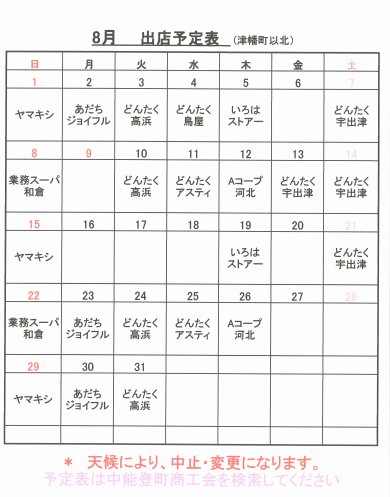 8月 出店予定表 (津幡町以北)
日 月 火 水 木 金 土
1 2 3 4 5 6 7
ヤマキシ あだち どんたく どんたく いろは どんたく
ジョイフル 高浜 鳥屋 ストアー 宇出津
8 9 10 11 12 13 14
業務スーパ どんたく どんたく Aコープ どんたく どんたく
和倉 高浜 アスティ 河北 宇出津 宇出津
15 16 17 18 19 20 21
ヤマキシ いろは どんたく
ストアー 宇出津
22 23 24 25 26 27 28
業務スーパ あだち どんたく どんたく Aコープ
和倉 ジョイフル 高浜 アスティ 河北
29 30 31
ヤマキシ あだち どんたく
ジョイフル 高浜
* 天候により、中止・変更になります。
予定表は中能登町商工会を検索してください